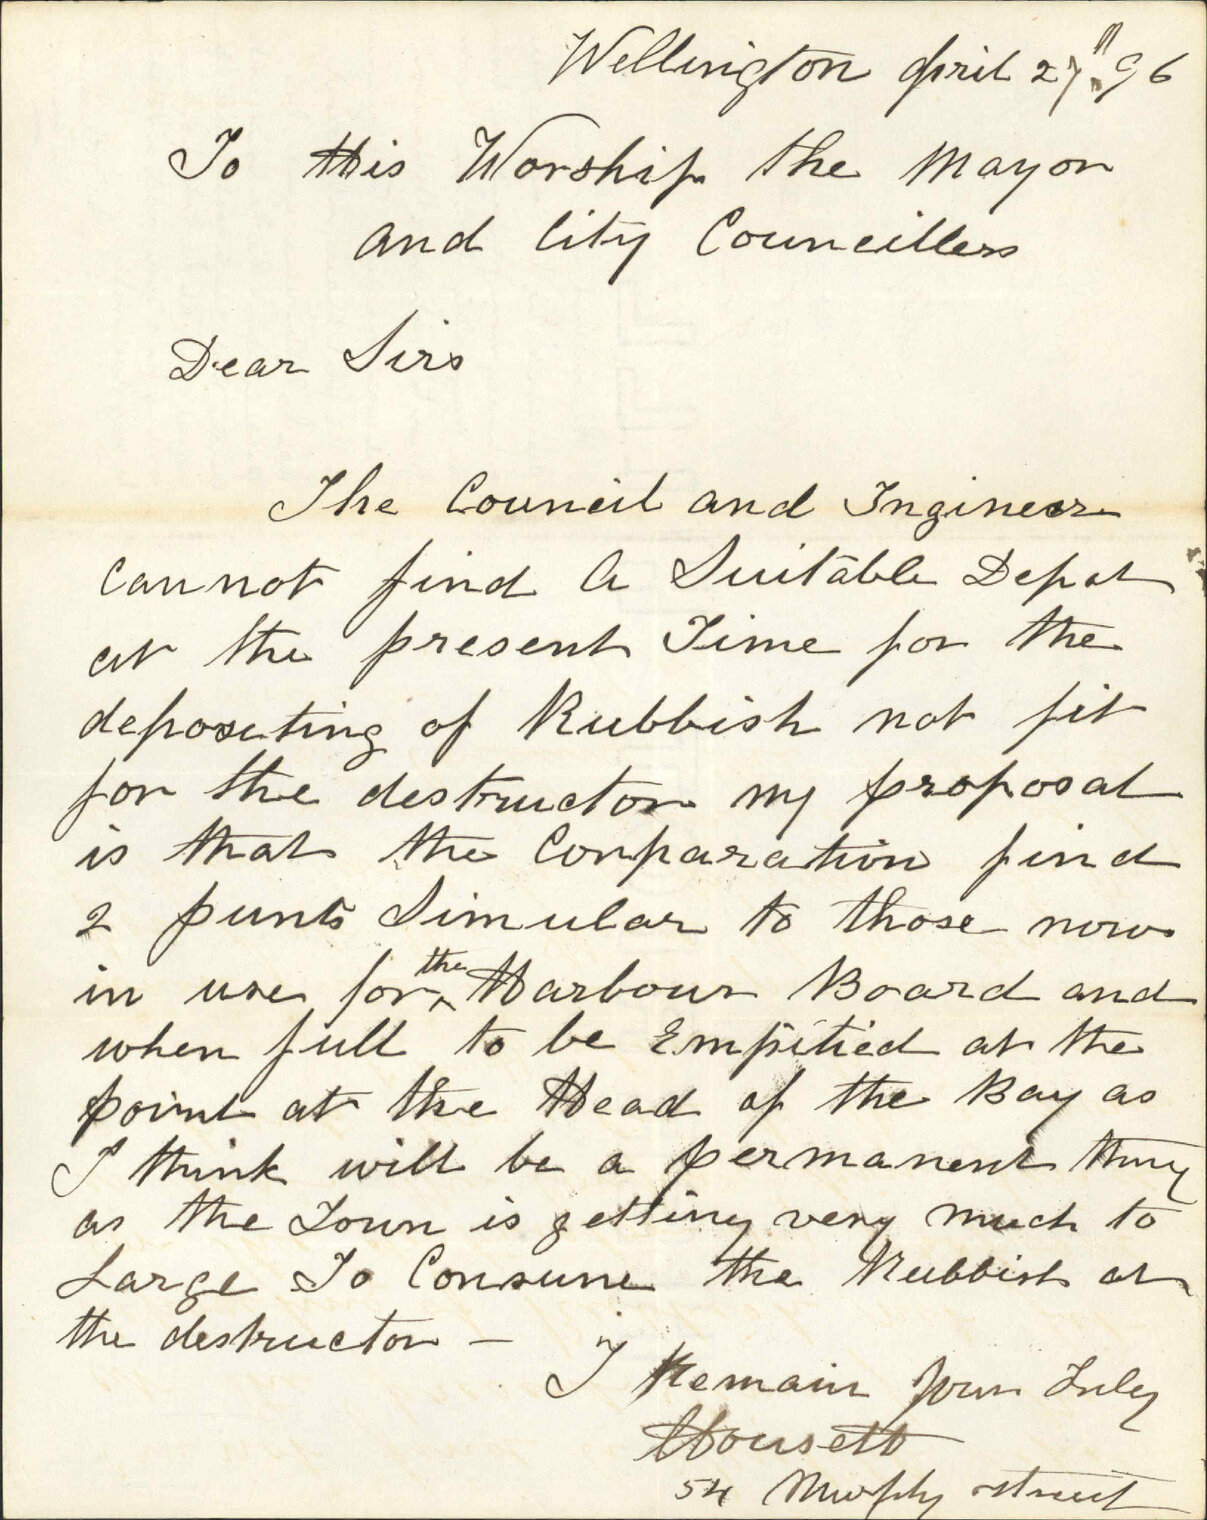 Wellington April 27th 96
To His Worship the Mayor
and City Councillers
Dear Sirs
The Council and Ingineer
cannot find a Suitable Depot
at the present Time for the
depositing of Rubbish not fit
for the destructor my proposal
is that the Corparation find
2 punts Simular to those now
in use for the Harbour Board and
when full to be Empitied at the
point at the Head of the Bay as
I think will be a permanent thing
as the Town is getting very much to
Large To Consume the Rubbish at
the destructor —
I Remain Your Truly
Housett
54 Murphy street